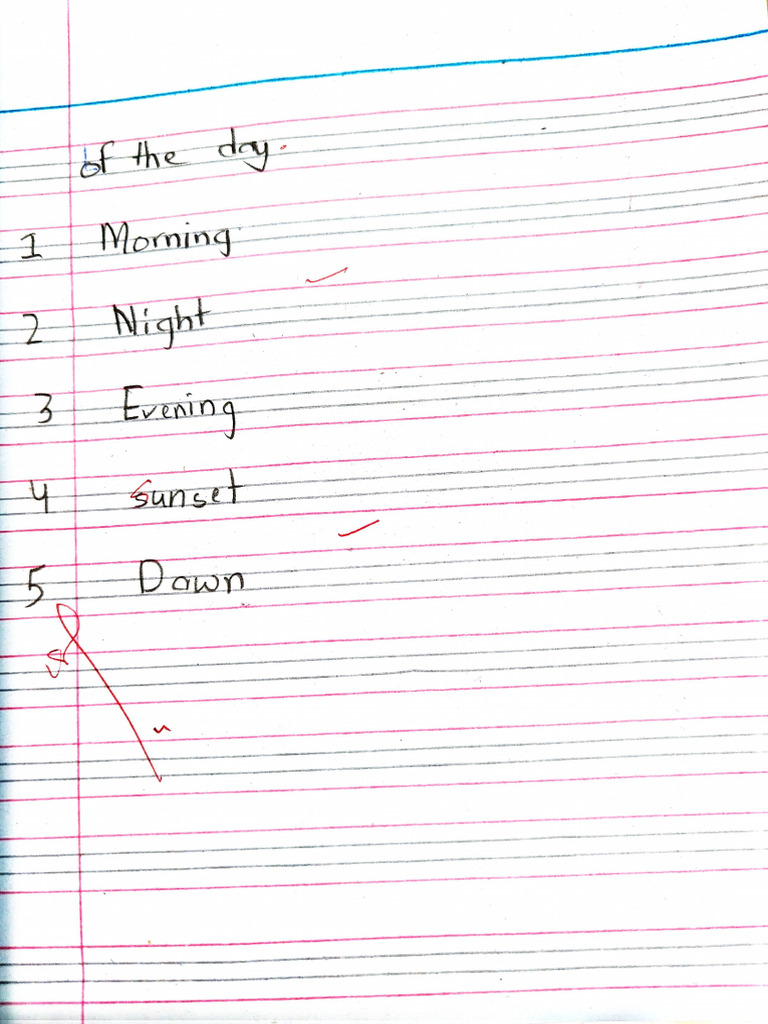 of the day.
1 Morning
2 Night
3 Evening
4 Sunset
5 Dawn